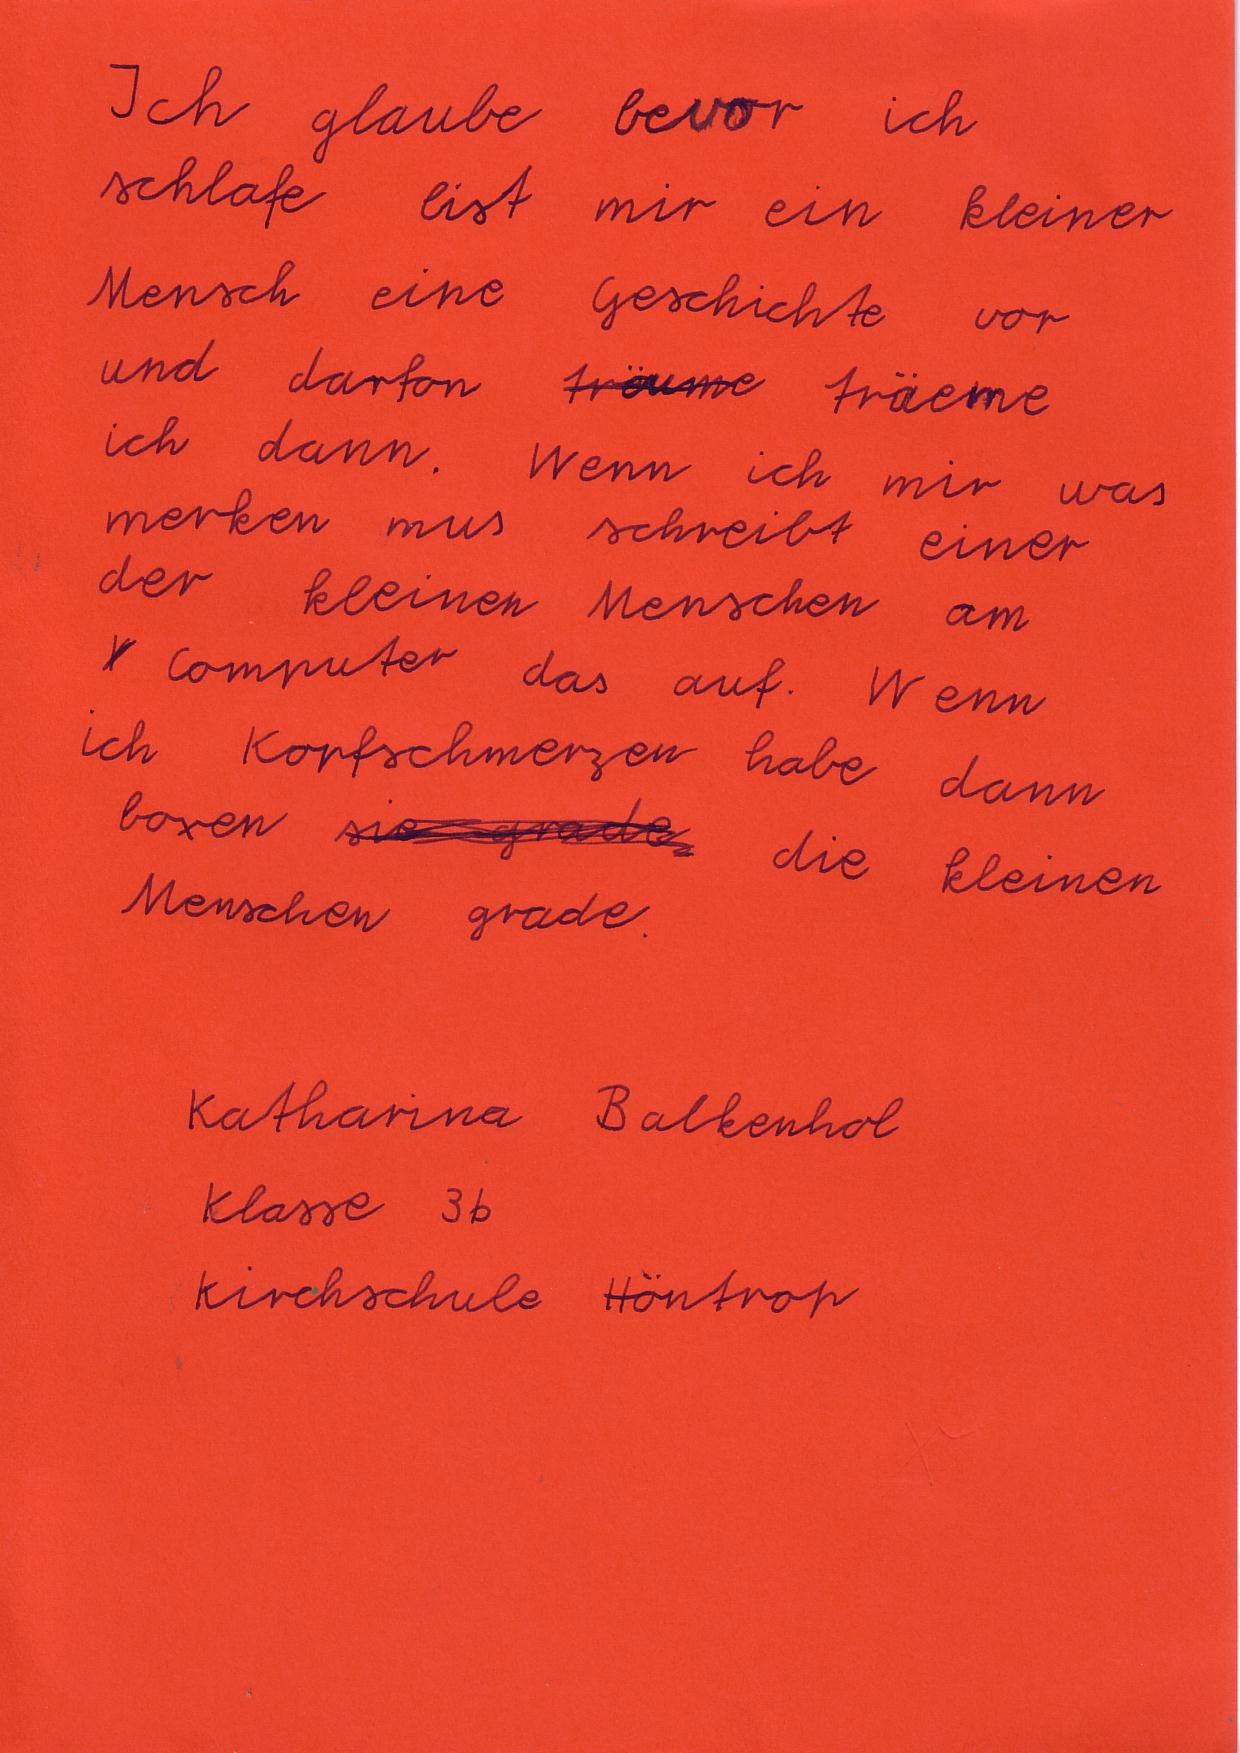 Ich glaube bevor ich
schlafe list mir ein kleiner
Mensch eine Geschichte vor
und darfon träume träeme
ich dann. Wenn ich mir was
merken mus schreibt einer
der kleinen Menschen am
Computer das auf. Wenn
ich Kopfschmerzen habe dann
boxen sie grade die kleinen
Menschen grade.
Katharina Balkenhol
Klasse 3b
Kirchschule Höntrop